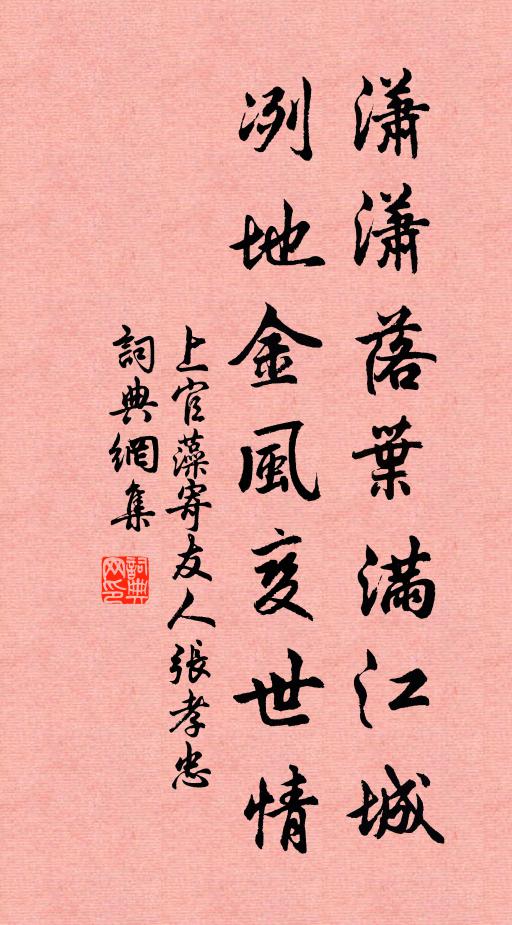 瀟瀟落葉滿江城
冽地金風變世情
上官藻寄友人張孝忠
詞典網集
詞典網印